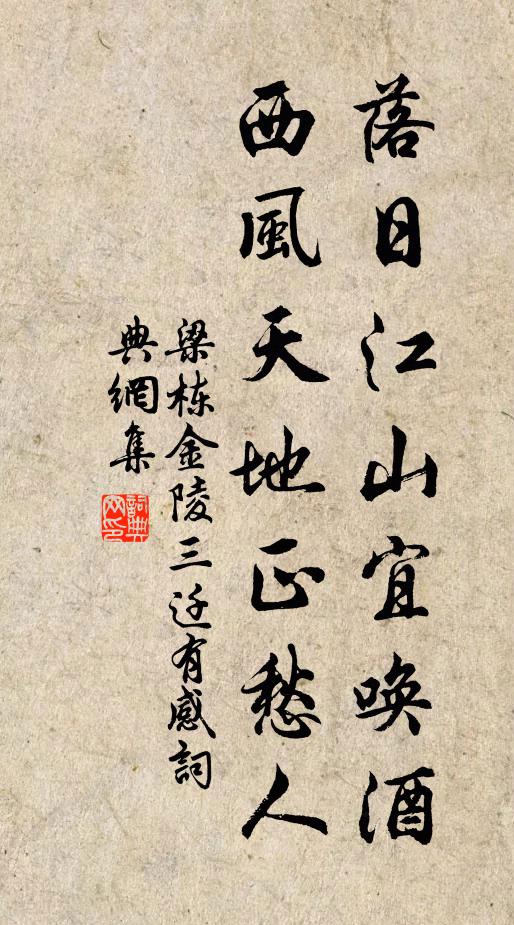 落日江山宜唤酒
西風天地正愁人
梁栋金陵三迁有感詞
典網集
詞典网印